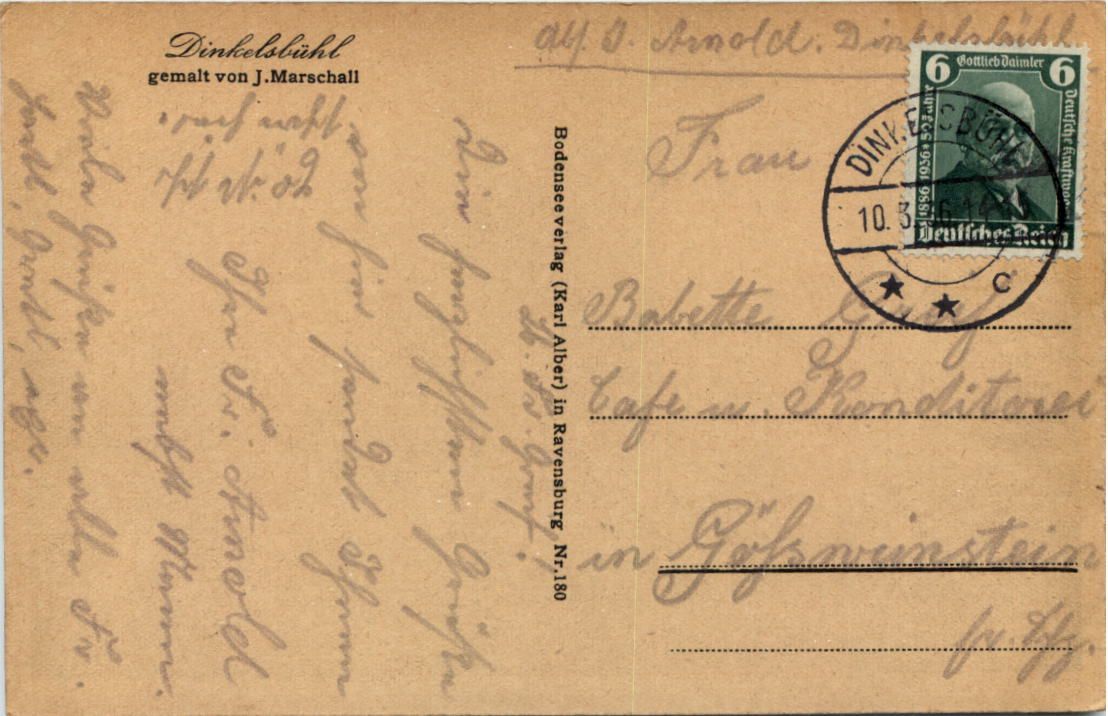 Dinkelsbühl
gemalt von J. Marschall
Abs. J. Arnold. Dinkelsbühl
6 Gottlieb Daimler 6
1886 1936 * 50 Jahre
Deutsche Kraftwagen
Deutsches Reich
DINKELSBÜHL
10. 3. 36. 14
C
Frau
Babette Graf
Cafe u. Konditorei
in Gößweinstein
fr. Schz.
Bodenseeverlag (Karl Alber) in Ravensburg Nr. 180
Lb. Fr. Graf!
Die herzlichsten Grüße
von hier sendet Ihnen
Ihre Fr. Arnold
nebst Mann.
Viele Grüße an alle Fr.